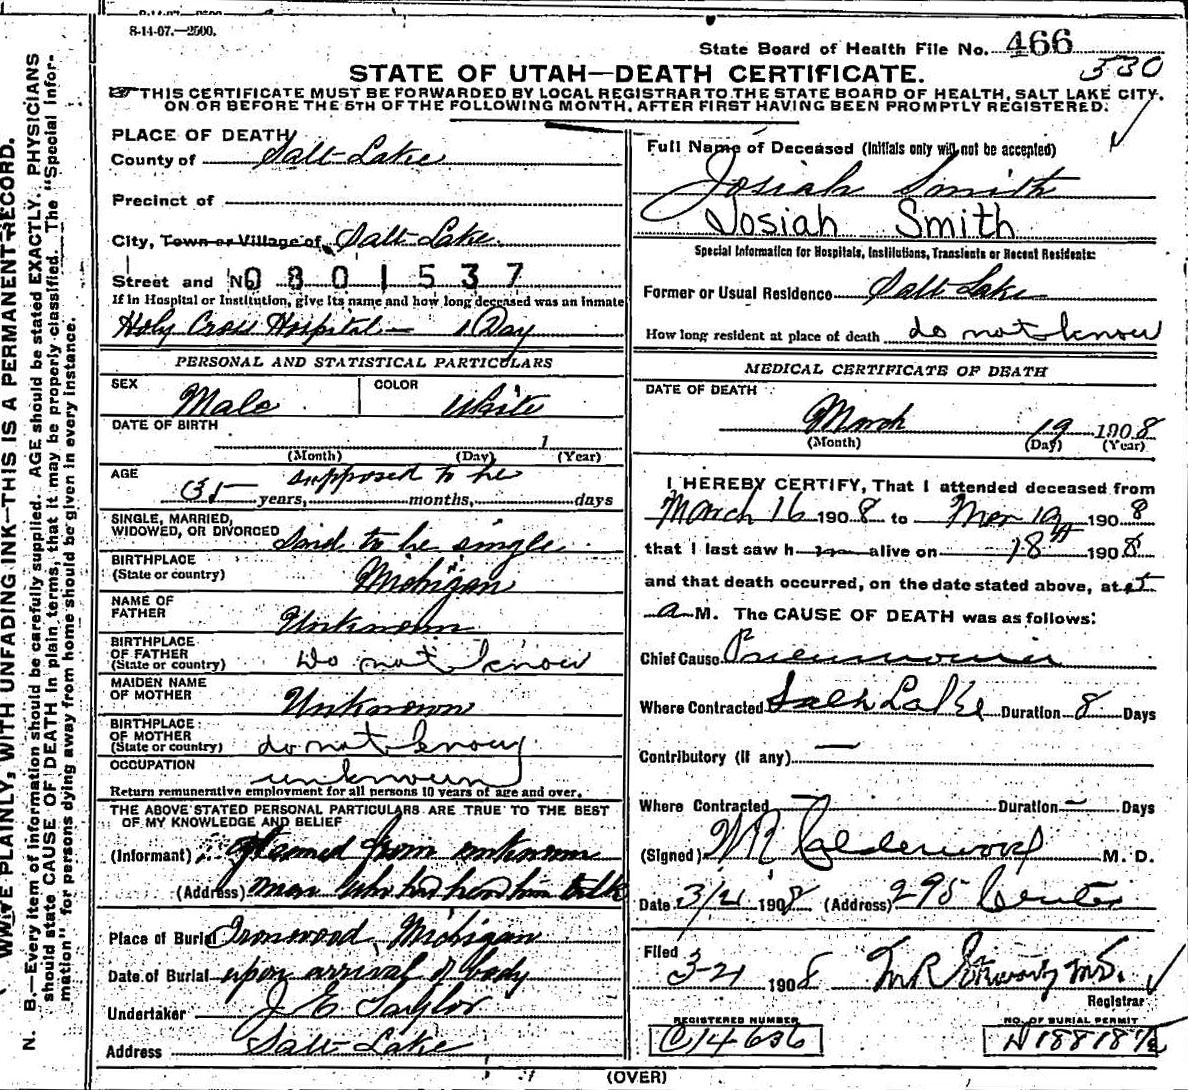 8-14-07.—2500.
State Board of Health File No. 466
530
STATE OF UTAH—DEATH CERTIFICATE.
THIS CERTIFICATE MUST BE FORWARDED BY LOCAL REGISTRAR TO THE STATE BOARD OF HEALTH, SALT LAKE CITY,
ON OR BEFORE THE 5TH OF THE FOLLOWING MONTH, AFTER FIRST HAVING BEEN PROMPTLY REGISTERED.
N. B.—Every item of information should be carefully supplied. AGE should be stated EXACTLY. PHYSICIANS
should state CAUSE OF DEATH in plain terms, that it may be properly classified. The "Special Infor-
mation" for persons dying away from home should be given in every instance.
PLAINLY, WITH UNFADING INK—THIS IS A PERMANENT RECORD.
PLACE OF DEATH
County of Salt Lake
Precinct of
City, Town or Village of Salt Lake
Street and No 0801537
If in Hospital or Institution, give its name and how long deceased was an inmate
Holy Cross Hospital — 1 Day
PERSONAL AND STATISTICAL PARTICULARS
SEX Male COLOR White
DATE OF BIRTH
1
(Month) (Day) (Year)
AGE supposed to be
35 years, months, days
SINGLE, MARRIED,
WIDOWED, OR DIVORCED Said to be single
BIRTHPLACE
(State or country) Michigan
NAME OF
FATHER Unknown
BIRTHPLACE
OF FATHER
(State or country) Do not know
MAIDEN NAME
OF MOTHER Unknown
BIRTHPLACE
OF MOTHER
(State or country) do not know
OCCUPATION
unknown
Return remunerative employment for all persons 10 years of age and over.
THE ABOVE STATED PERSONAL PARTICULARS ARE TRUE TO THE BEST
OF MY KNOWLEDGE AND BELIEF
(Informant) from unknown
(Address) man who had heard him talk
Place of Burial Ironwood Michigan
Date of Burial upon arrival of body
Undertaker J E Taylor
Address Salt Lake
Full Name of Deceased (Initials only will not be accepted)
Josiah Smith
Josiah Smith
Special Information for Hospitals, Institutions, Transients or Recent Residents:
Former or Usual Residence Salt Lake
How long resident at place of death do not know
MEDICAL CERTIFICATE OF DEATH
DATE OF DEATH
March 19 1908
(Month) (Day) (Year)
I HEREBY CERTIFY, That I attended deceased from
March 16 1908 to Mar 19 1908
that I last saw h im alive on 18th 1908
and that death occurred, on the date stated above, at 5
a M. The CAUSE OF DEATH was as follows:
Chief Cause Pneumonia
Where Contracted Salt Lake Duration 8 Days
Contributory (if any) —
Where Contracted — Duration — Days
(Signed) M. D.
Date 3/21 1908 (Address) 295 Center
Filed
3-21 1908
Registrar
REGISTERED NUMBER
014636
NO. OF BURIAL PERMIT
(OVER)